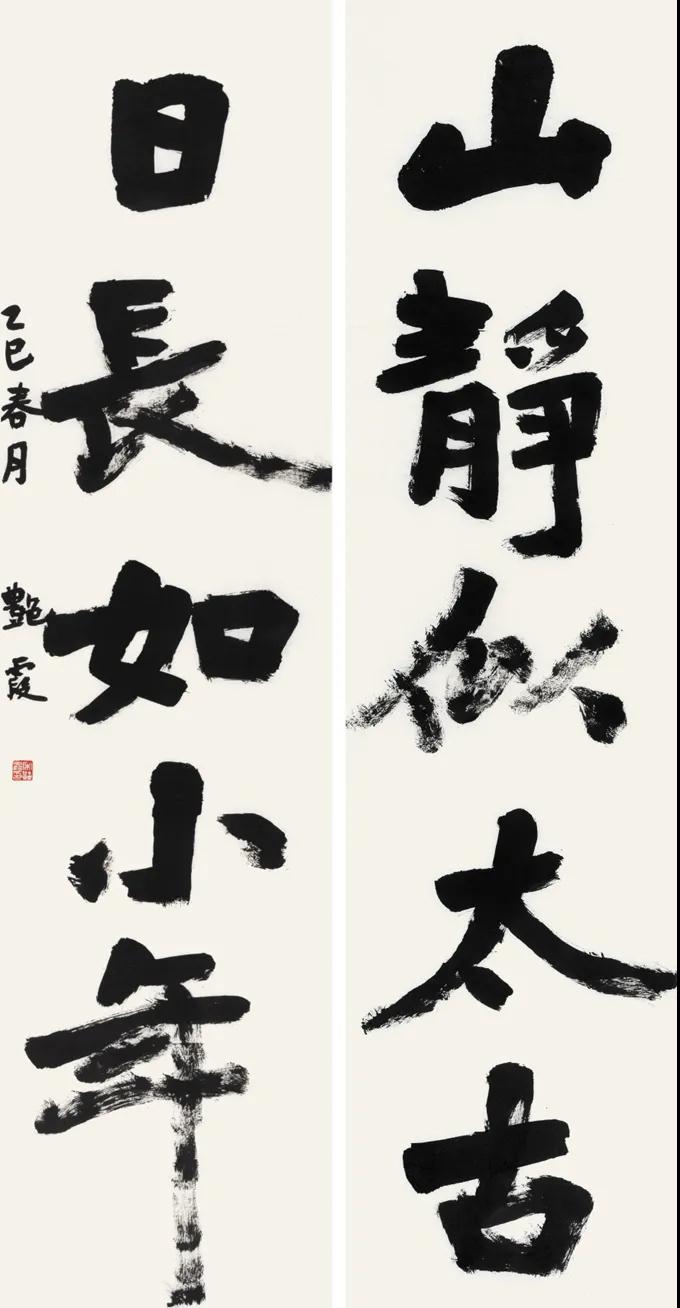 山靜似太古
日長如小年
乙巳春月
艷霞